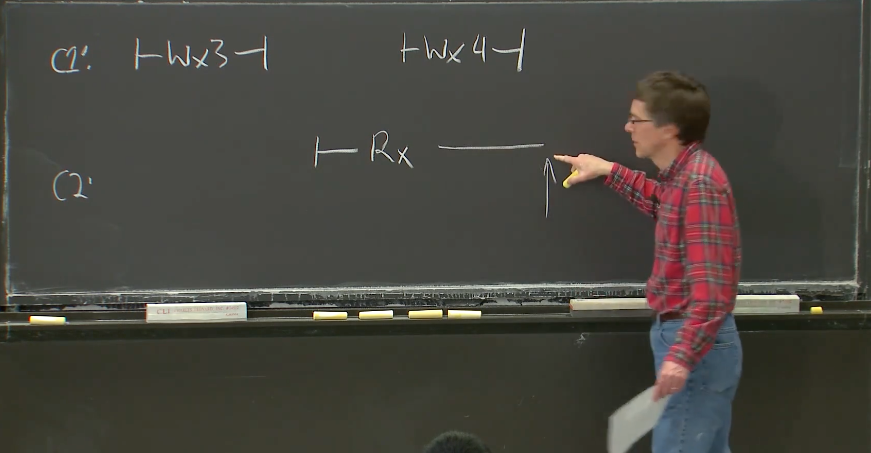 C1: |-Wx3-| |-Wx4-|
|- Rx —
C2: